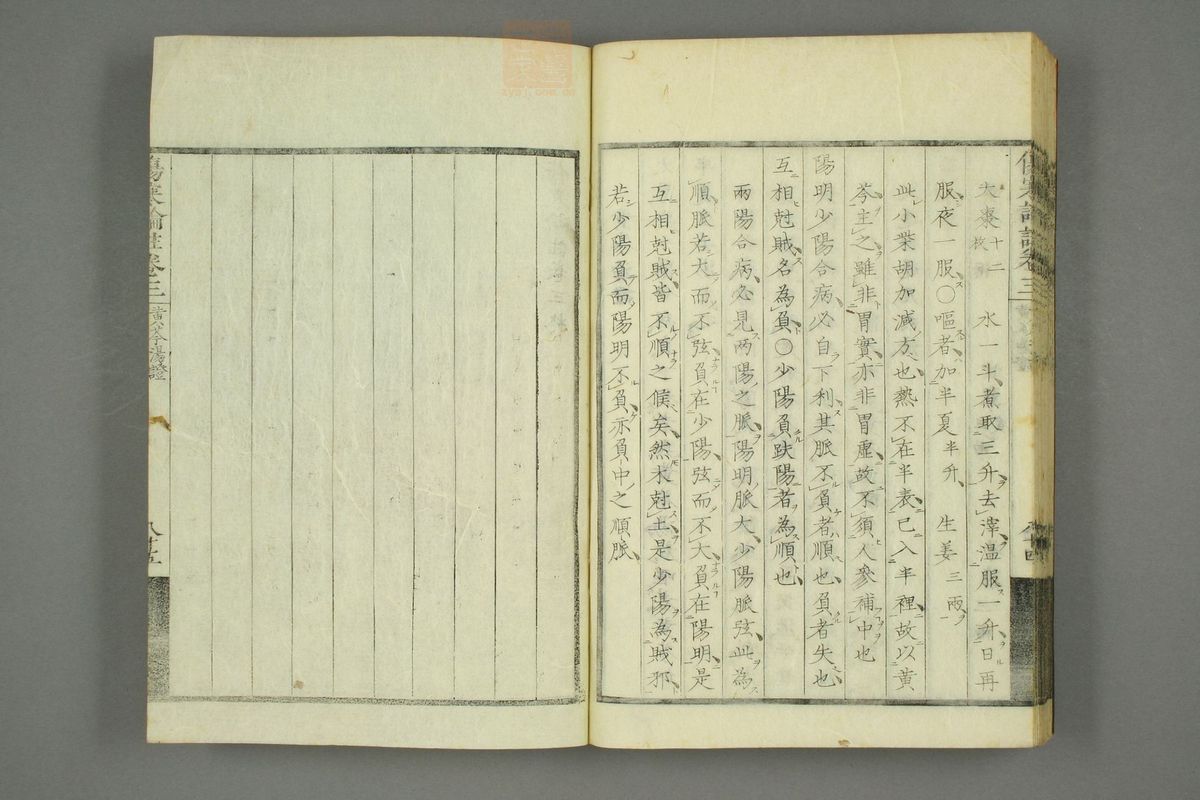 大棗十二枚　水一斗煮取三升去滓温服一升日再
服夜一服〇嘔者加半夏半升　生姜三兩
此小柴胡加減方也熱不在半表已入半裡故以黄
芩主之雖非胃實亦非胃虛故不須人參補中也
陽明少陽合病必自下利其脈不負者順也負者失也
互相尅賊名為負〇少陽負趺陽者為順也
兩陽合病必見两陽之脈陽明脈大少陽脈弦此為
順脈若大而不弦負在少陽弦而不大負在陽明是
互相尅賊皆不順之候矣然木尅土是少陽為賊邪
若少陽負而陽明不負亦負中之順脈
傷寒論註卷三
黄芩湯證
八十五